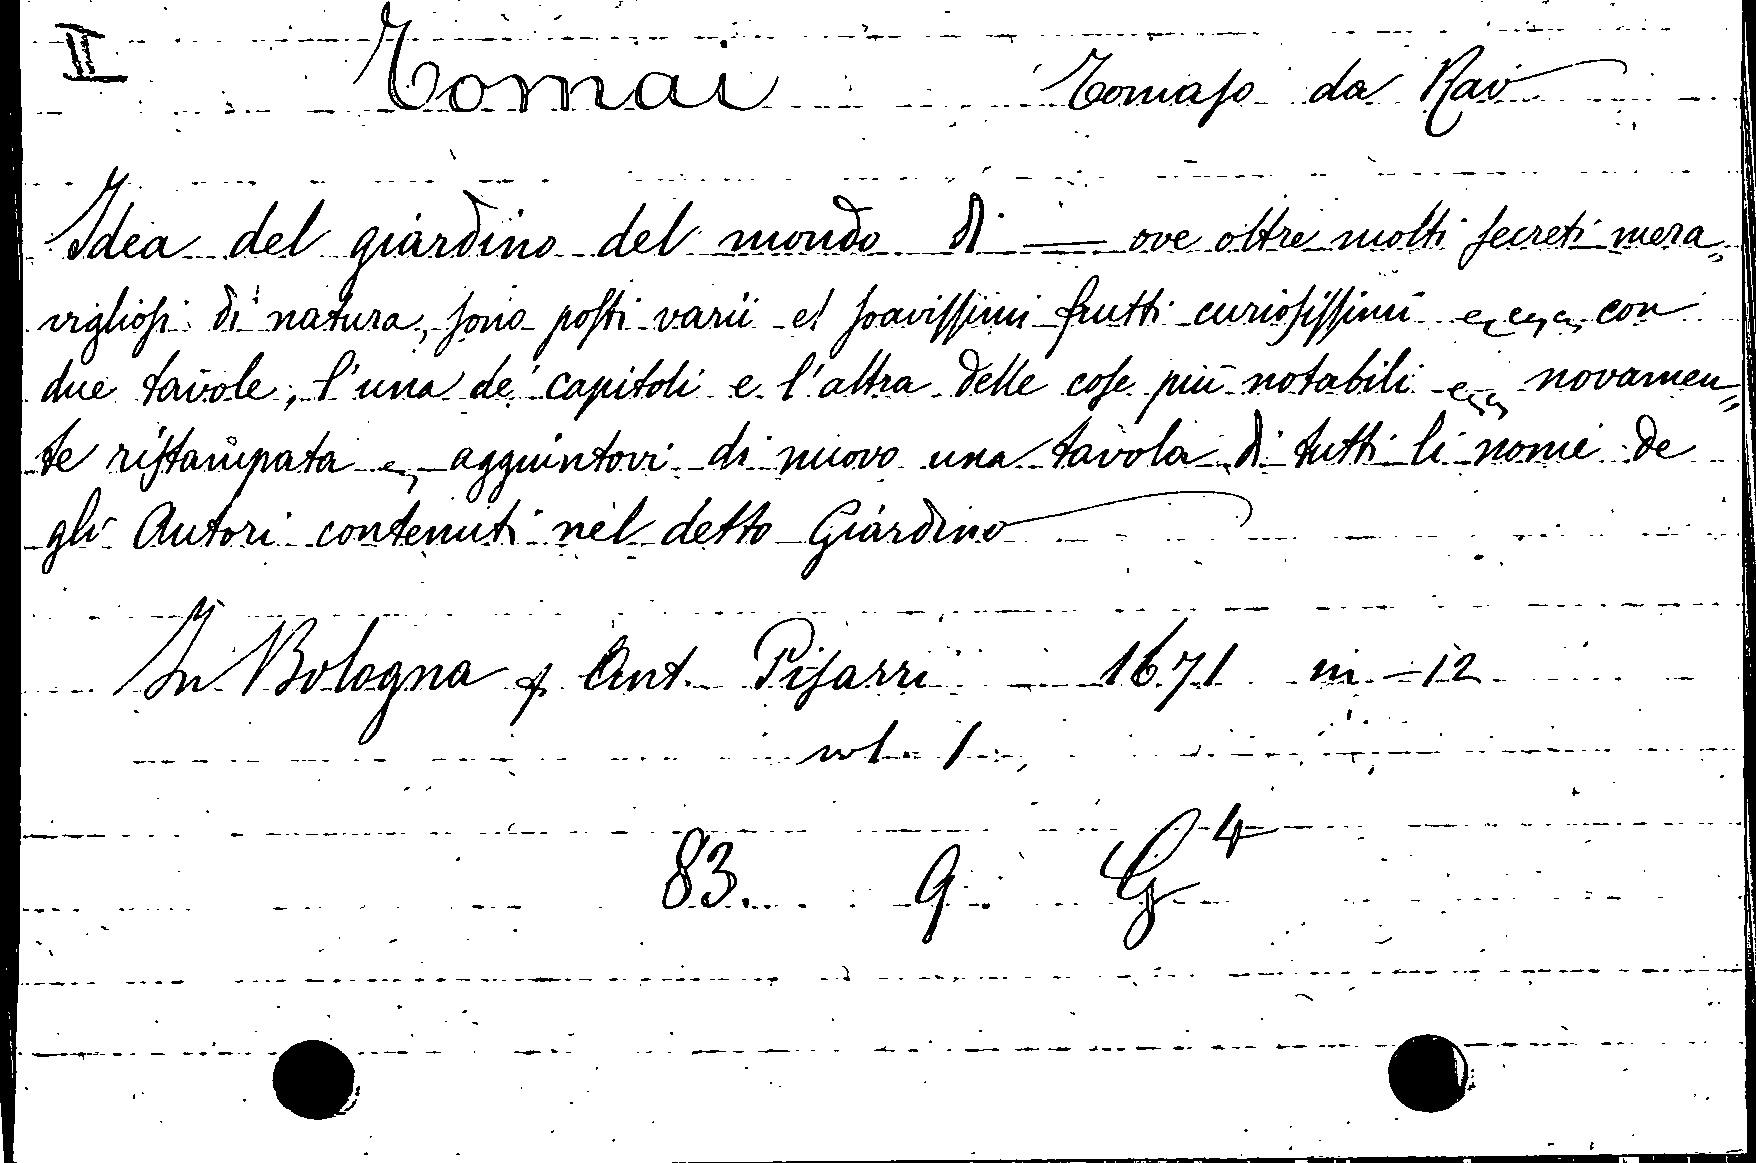 II Tomai Tomaso da Rav
Idea del giardino del mondo di — ove oltre molti secreti mera„
vigliosi di natura, sono posti varii et soavissimi frutti curiosissimi con
due tavole, l'una de' capitoli e l'altra delle cose più notabili novamen„
te ristampata aggiuntovi di nuovo una tavola di tutti li nomi de
gli Autori contenuti nel detto Giardino
In Bologna p Ant. Pisarri 1671 in-12
vol. 1.
83. 9. G4